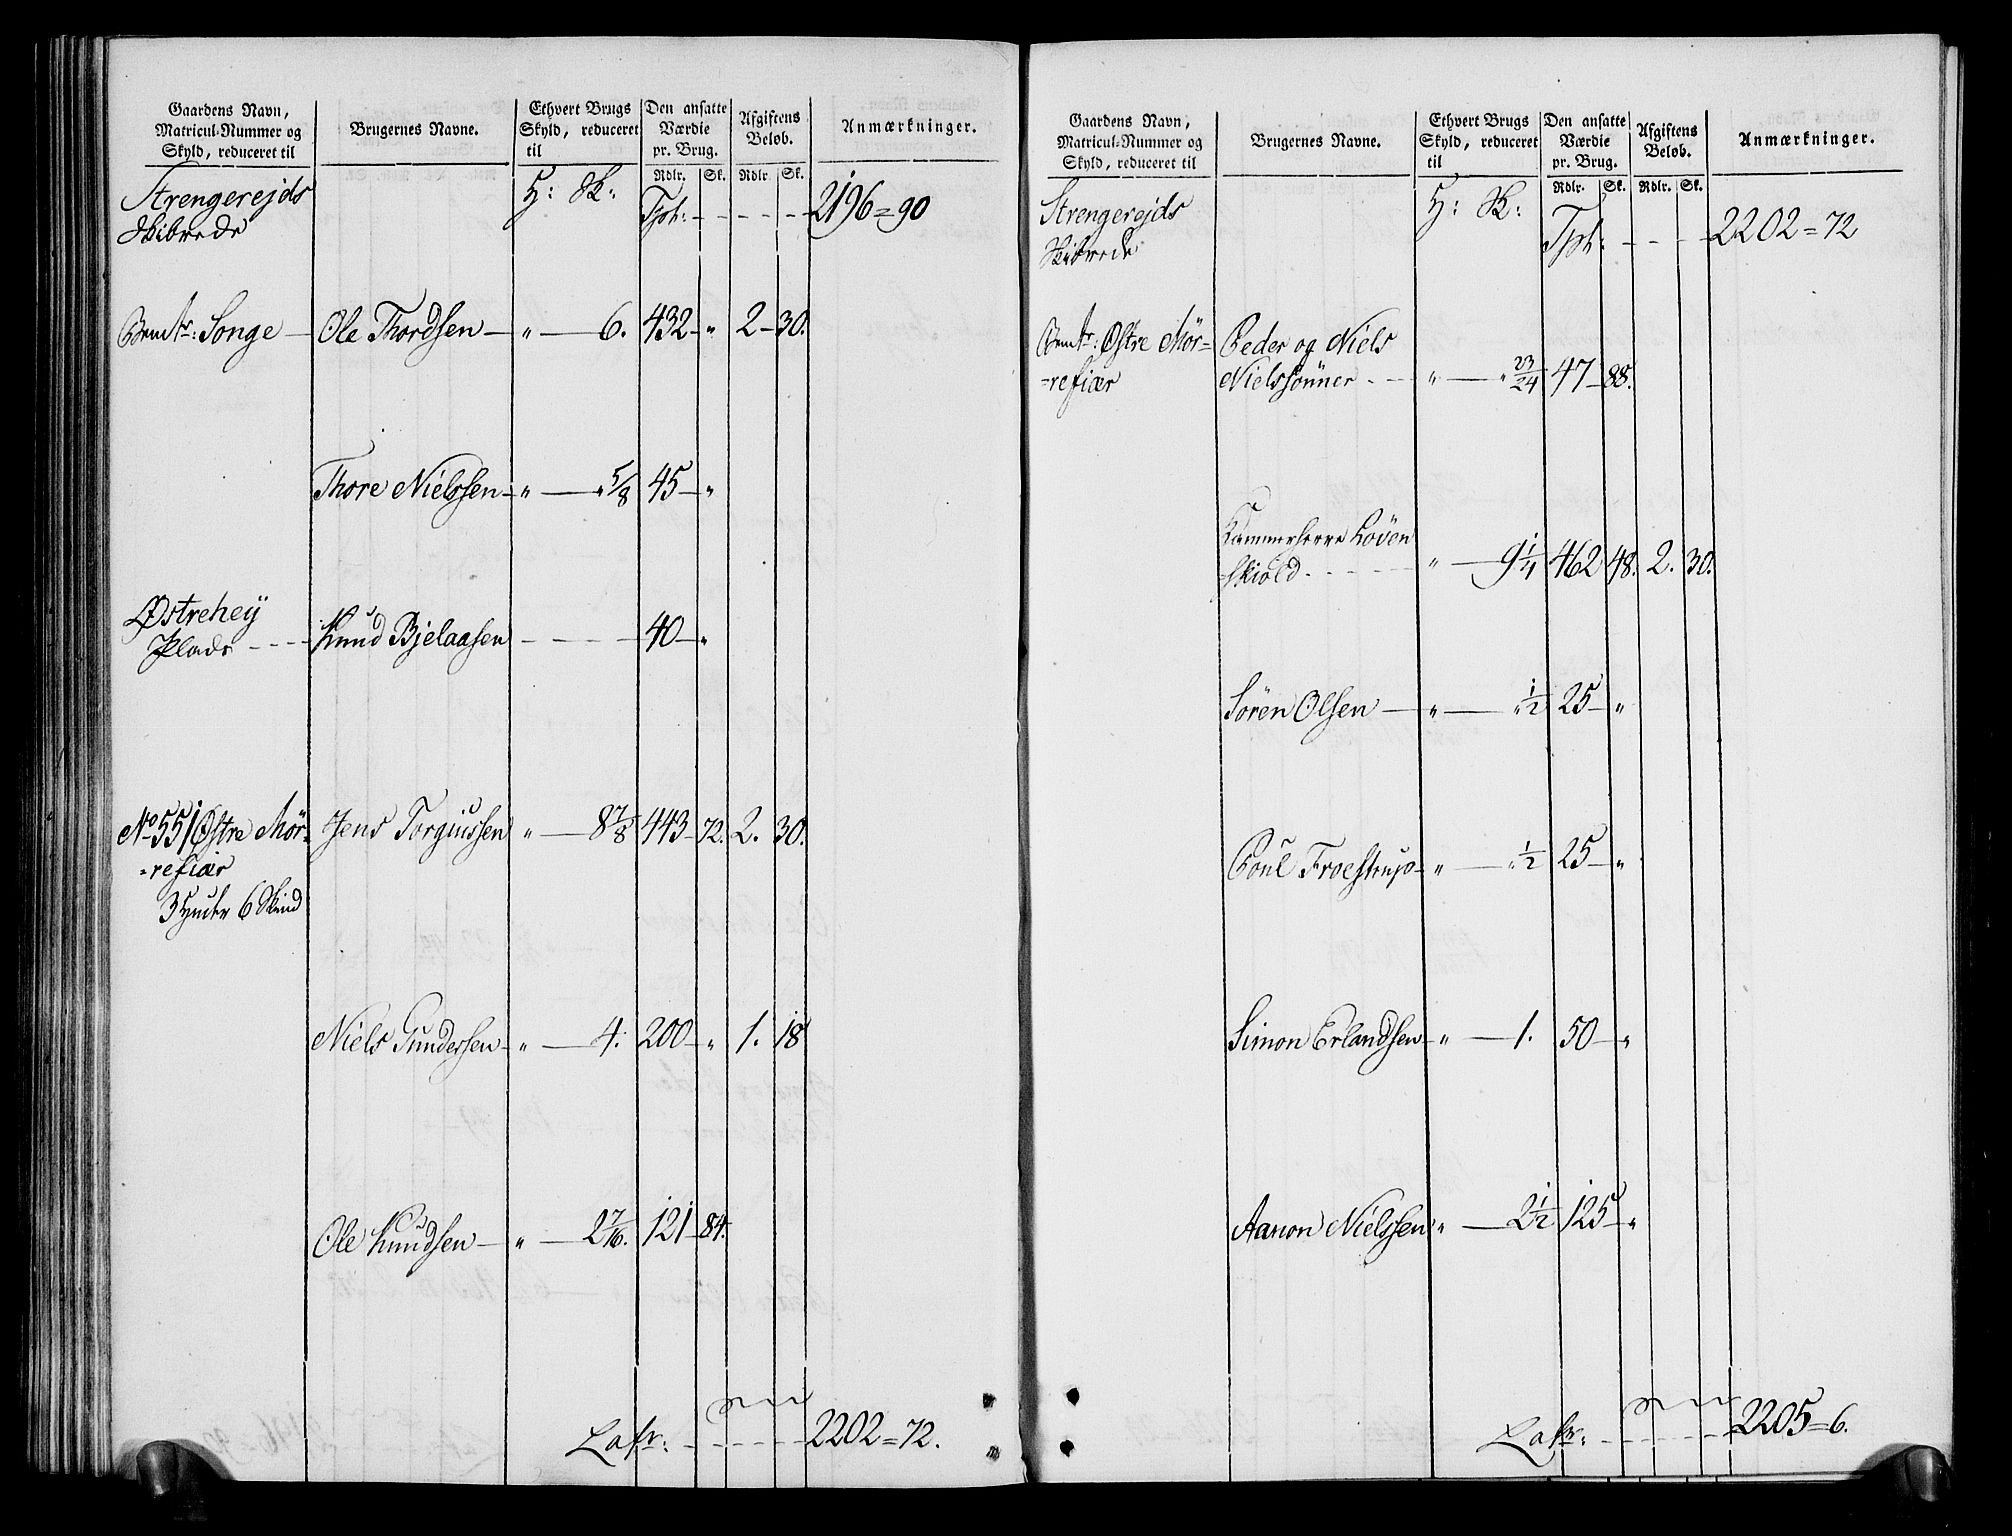 Gaardens Navn, Matricul-Nummer og Skyld, reduceret til | Brugernes Navne. | Ethvert Brugs Skyld, reduceret til | Den ansatte Værdie pr. Brug. | Afgiftens Beløb. | Anmærkninger.
Rdlr. Sk. Rdlr. Sk.
Strengerejds H: Sk: Tpt: - - - - 2196=90
Skibrede
Bemte: Songe — Ole Thordsen — „ — 6. 432 — „ 2 — 30.
Thore Nielssen — „ — „ 5/8 45 — „
Østrehey
Plads - - - Knud Bjelaasen - - - - 40 — „
No 55 / Østre Mör- Jens Torgiussen „ — 8 7/8 443 — 72. 2. 30.
=refiær
3 Huder 6 Skind
Niels Gundersen — „ — 4. 200 — „ 1. 18
Ole Knudsen — „ — 2 7/16. 121 — 84.
Lats: - - - - - 2202=72.
Gaardens Navn, Matricul-Nummer og Skyld, reduceret til | Brugernes Navne. | Ethvert Brugs Skyld, reduceret til | Den ansatte Værdie pr. Brug. | Afgiftens Beløb. | Anmærkninger.
Rdlr. Sk. Rdlr. Sk.
Strengerejds H: Sk: Tpt: - - - - 2202=72
Skibrede
Bemte: Østre Mör- Peder og Niels
=refiær Nielssönner - - - „ — „ 23/24 47 — 88.
Kammerherre Löven
=skiold - - - - - „ — 9 1/4 462 48. 2. 30.
Sören Olsen — „ — „ 1/2 25 — „
Poul Froestrup — „ — „ 1/2 25 — „
Simon Erlandsen — „ — 1. 50 — „
Aanon Nielssen „ — 2 1/2 125 — „
Lats: - - - - - 2205=6.